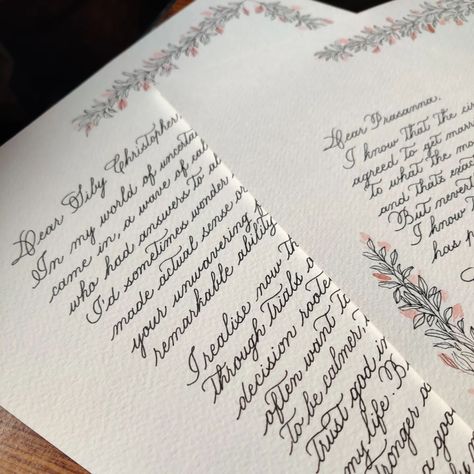 Dear Siby Christopher,
In my world of uncerta
came in, a wave of cal
who had answers to al
I'd sometimes wonder
made actual sense or
your unwavering
remarkable ability
I realise now th
through Trials a
decision roote
often want to
to be calmer,
Trust god in
my life. B
onger a
goo
Dear Prasanna,
I know that the cir
agreed to get marr
to what the mo
and thats exac
But nevert
I know T
has p